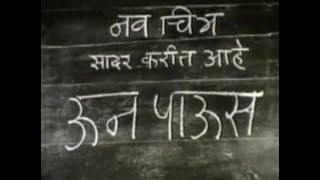 नव चित्र
सादर करीत आहे
ऊन पाऊस